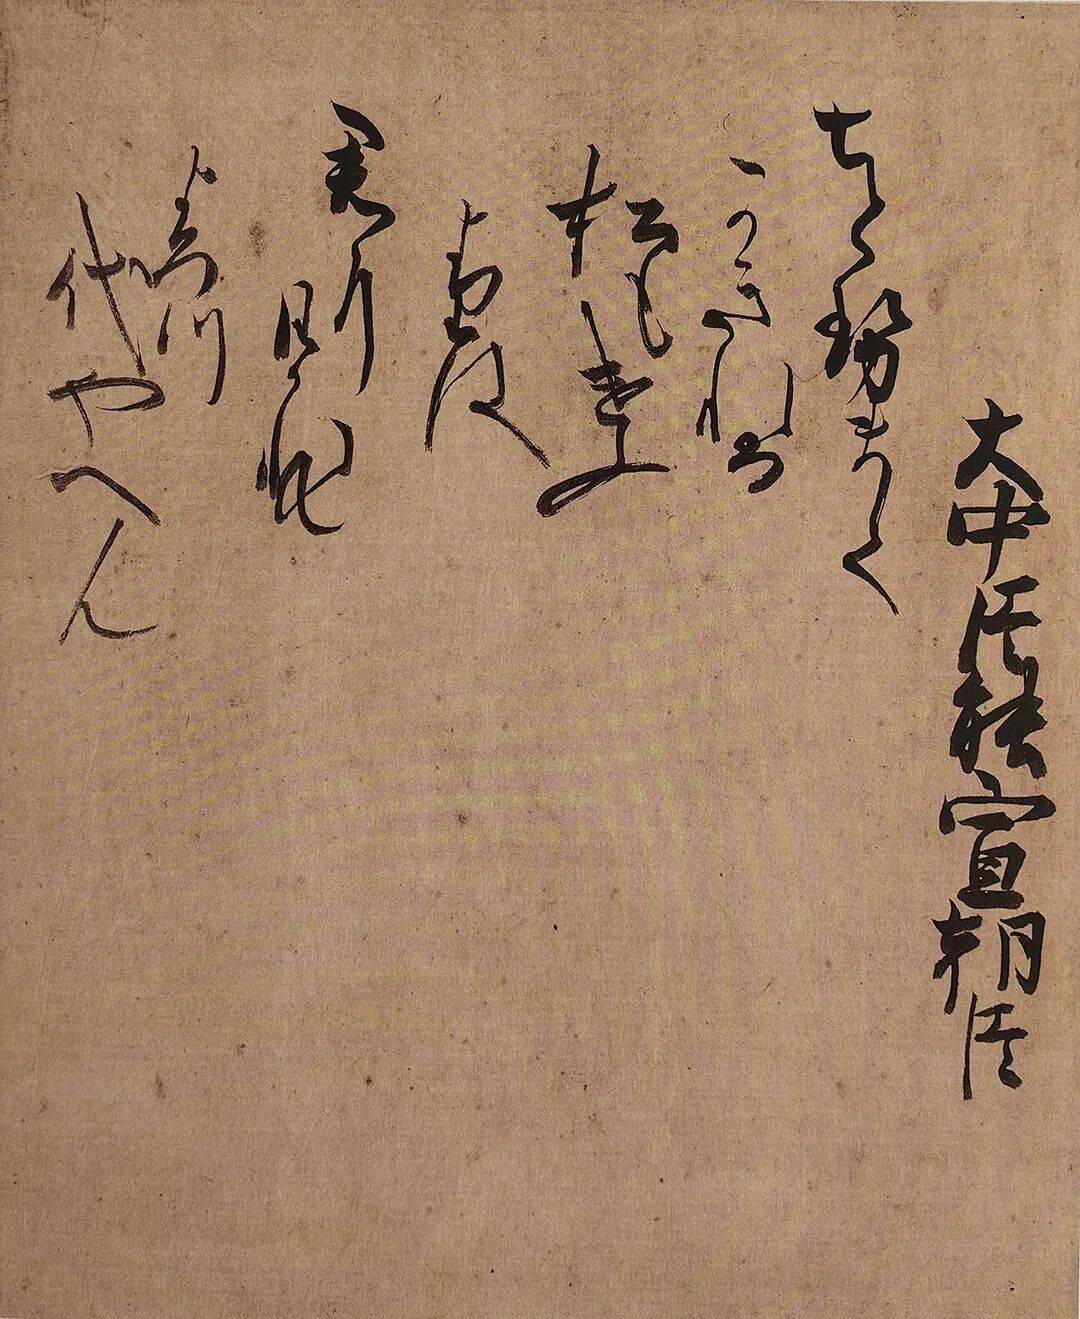 大中臣能宣朝臣
ちと勢まて
かきれる
松もけふ
よりは
君に
日かれて
よろつ
代やへん